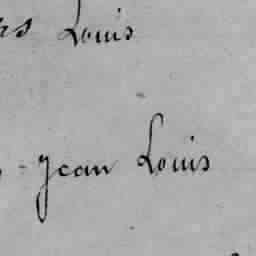 Louis
- Jean Louis